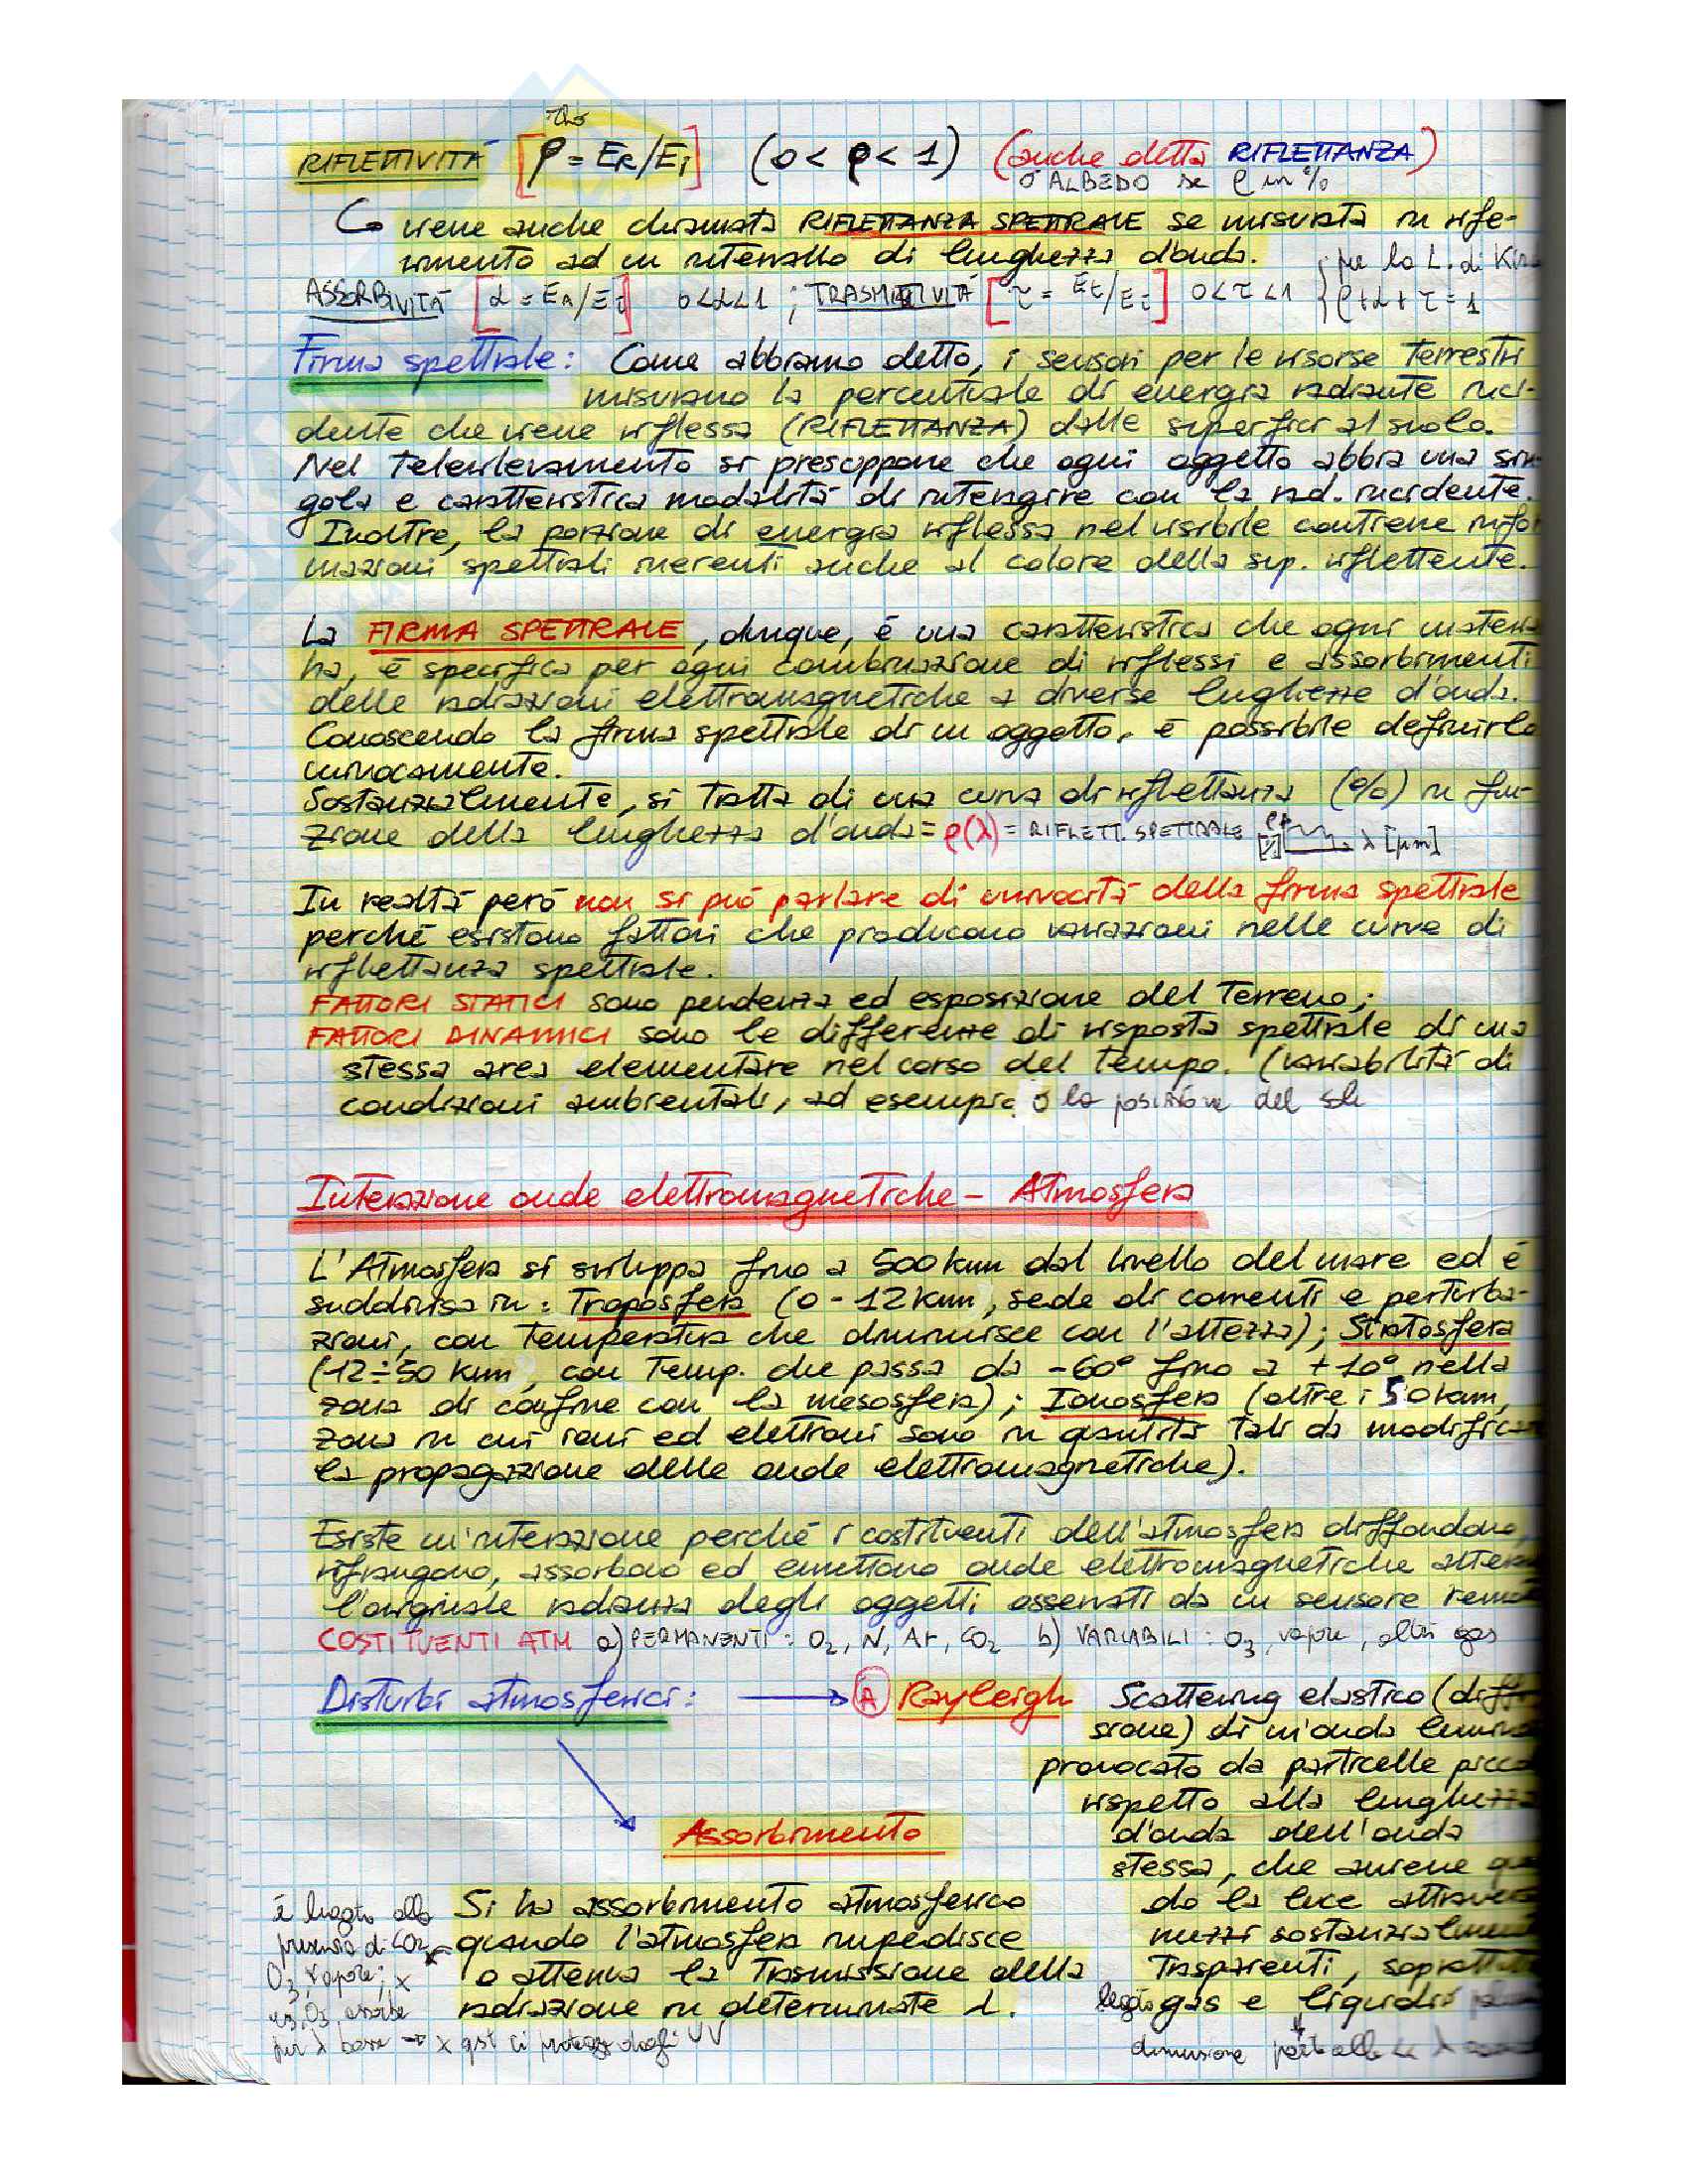 Rho
RIFLETTIVITÀ [ρ = ER/Ei] (0 < ρ < 1) (anche detta RIFLETTANZA)
o ALBEDO se ρ in %
viene anche chiamata RIFLETTANZA SPETTRALE se misurata in rife-
rimento ad un intervallo di lunghezza d'onda.
per la L. di
ASSORBIVITÀ [α = EA/Ei] 0<α<1 ; TRASMITTIVITÀ [τ = Et/Ei] 0<τ<1 { ρ+α+τ=1
Firma spettrale: Come abbiamo detto, i sensori per le risorse terrestri
misurano la percentuale di energia radiante inci-
dente che viene riflessa (RIFLETTANZA) dalle superfici al suolo.
Nel telerilevamento si presuppone che ogni oggetto abbia una sin-
gola e caratteristica modalità di interagire con la rad. incidente.
Inoltre, la porzione di energia riflessa nel visibile contiene infor
mazioni spettrali inerenti anche al colore della sup. riflettente.
La FIRMA SPETTRALE, dunque, è una caratteristica che ogni materia
ha, è specifica per ogni combinazione di riflessi e assorbimenti
delle radiazioni elettromagnetiche a diverse lunghezze d'onda.
Conoscendo la firma spettrale di un oggetto, è possibile definirlo
univocamente.
Sostanzialmente, si tratta di una curva di riflettanza (%) in fun-
zione della lunghezza d'onda = ρ(λ) = RIFLETT. SPETTRALE ρ [%] λ [μm]
In realtà però non si può parlare di univocità della firma spettrale
perché esistono fattori che producono variazioni nelle curve di
riflettanza spettrale.
FATTORI STATICI sono pendenza ed esposizione del terreno;
FATTORI DINAMICI sono le differenze di risposta spettrale di una
stessa area elementare nel corso del tempo. (variabilità di
condizioni ambientali, ad esempio, o la posizione del sole
Interazione onde elettromagnetiche - Atmosfera
L'Atmosfera si sviluppa fino a 500 km dal livello del mare ed è
suddivisa in: Troposfera (0 - 12 km, sede di correnti e perturba-
zioni, con temperatura che diminuisce con l'altezza); Stratosfera
(12÷50 km, con temp. che passa da -60° fino a +10° nella
zona di confine con la mesosfera); Ionosfera (oltre i 50 km,
zona in cui ioni ed elettroni sono in quantità tali da modificare
la propagazione delle onde elettromagnetiche).
Esiste un'interazione perché i costituenti dell'atmosfera diffondono,
rifrangono, assorbono ed emettono onde elettromagnetiche
l'originale radianza degli oggetti osservati da un sensore
COSTITUENTI ATM a) PERMANENTI: O2, N, Ar, CO2 b) VARIABILI: O3, vapore, altri gas
Disturbi atmosferici: → A Rayleigh Scattering elastico (diffu
sione) di un'onda
provocato da particelle
rispetto alla lunghezza
Assorbimento d'onda dell'onda
stessa, che avviene
è legato alla Si ha assorbimento atmosferico do la luce
presenza di CO2, quando l'atmosfera impedisce mezzi
O3, vapore; x o attenua la trasmissione della trasparenti,
es. O3 assorbe radiazione in determinate λ. gas e liquidi
per λ basse → x qst ci protegge dagli UV dimensione